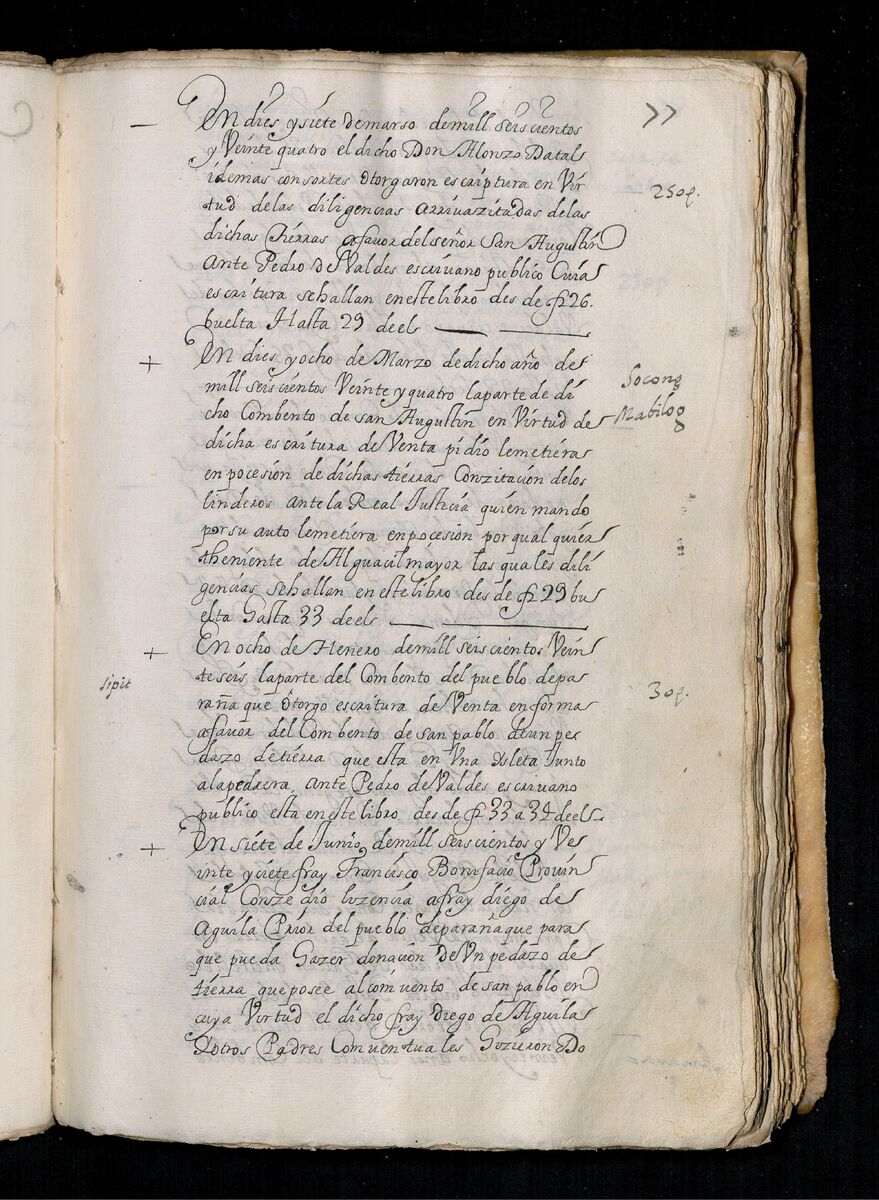 77
En dies y siete de marso de mill seiscientos
y Veinte quatro el dicho Don Alonzo Datal
idemas consortes otorgaron escriptura en Vir
tud de las diligencias arrivazitadas de las
250p.
dichas tierras a favor del señor San Augustin
Ante Pedro de Valdes escrivano publico Cuia
escritura se hallan en este libro des de f 26.
buelta Hasta 29 deel
+ En dies y ocho de Marzo de dicho año de
mill seiscientos Veinte y quatro la parte de di
Socong
Mabilog
cho Combento de san Augustin en Virtud de
dicha escritura de Venta pidio le metieras
en pocesion de dichas tierras Conzitacion de los
linderos ante la Real Justicia quien mando
por su auto le metiera en pocesion por qual quier
theniente de Alguacil mayor las quales dili
gencias se hallan en este libro des de f 29 bu
elta Hasta 33 deel
+ En ocho de Henero de mill seiscientos Vein
te seis la parte del Combento del pueblo de pa
sipit
30p.
rañaque otorgo escritura de Venta en forma
a favor del Combento de san pablo de un pe
dazo de tierra que esta en Vna Isleta Junto
a la pedrera ante Pedro de Valdes escrivano
publico esta en este libro des de f 33 a 34 deel
+ En siete de Junio de mill seiscientos y Ve
inte y siete fray Francisco Bonifacio Provin
cial Conzedio lizencia a fray diego de
Aguila Prior del pueblo de parañaque para
que pueda Hazer donacion de Vn pedazo de
tierra que posee al comvento de san pablo en
cuya Virtud el dicho fray Diego de Aguila
Y otros Padres Comventuales Hizieron Do